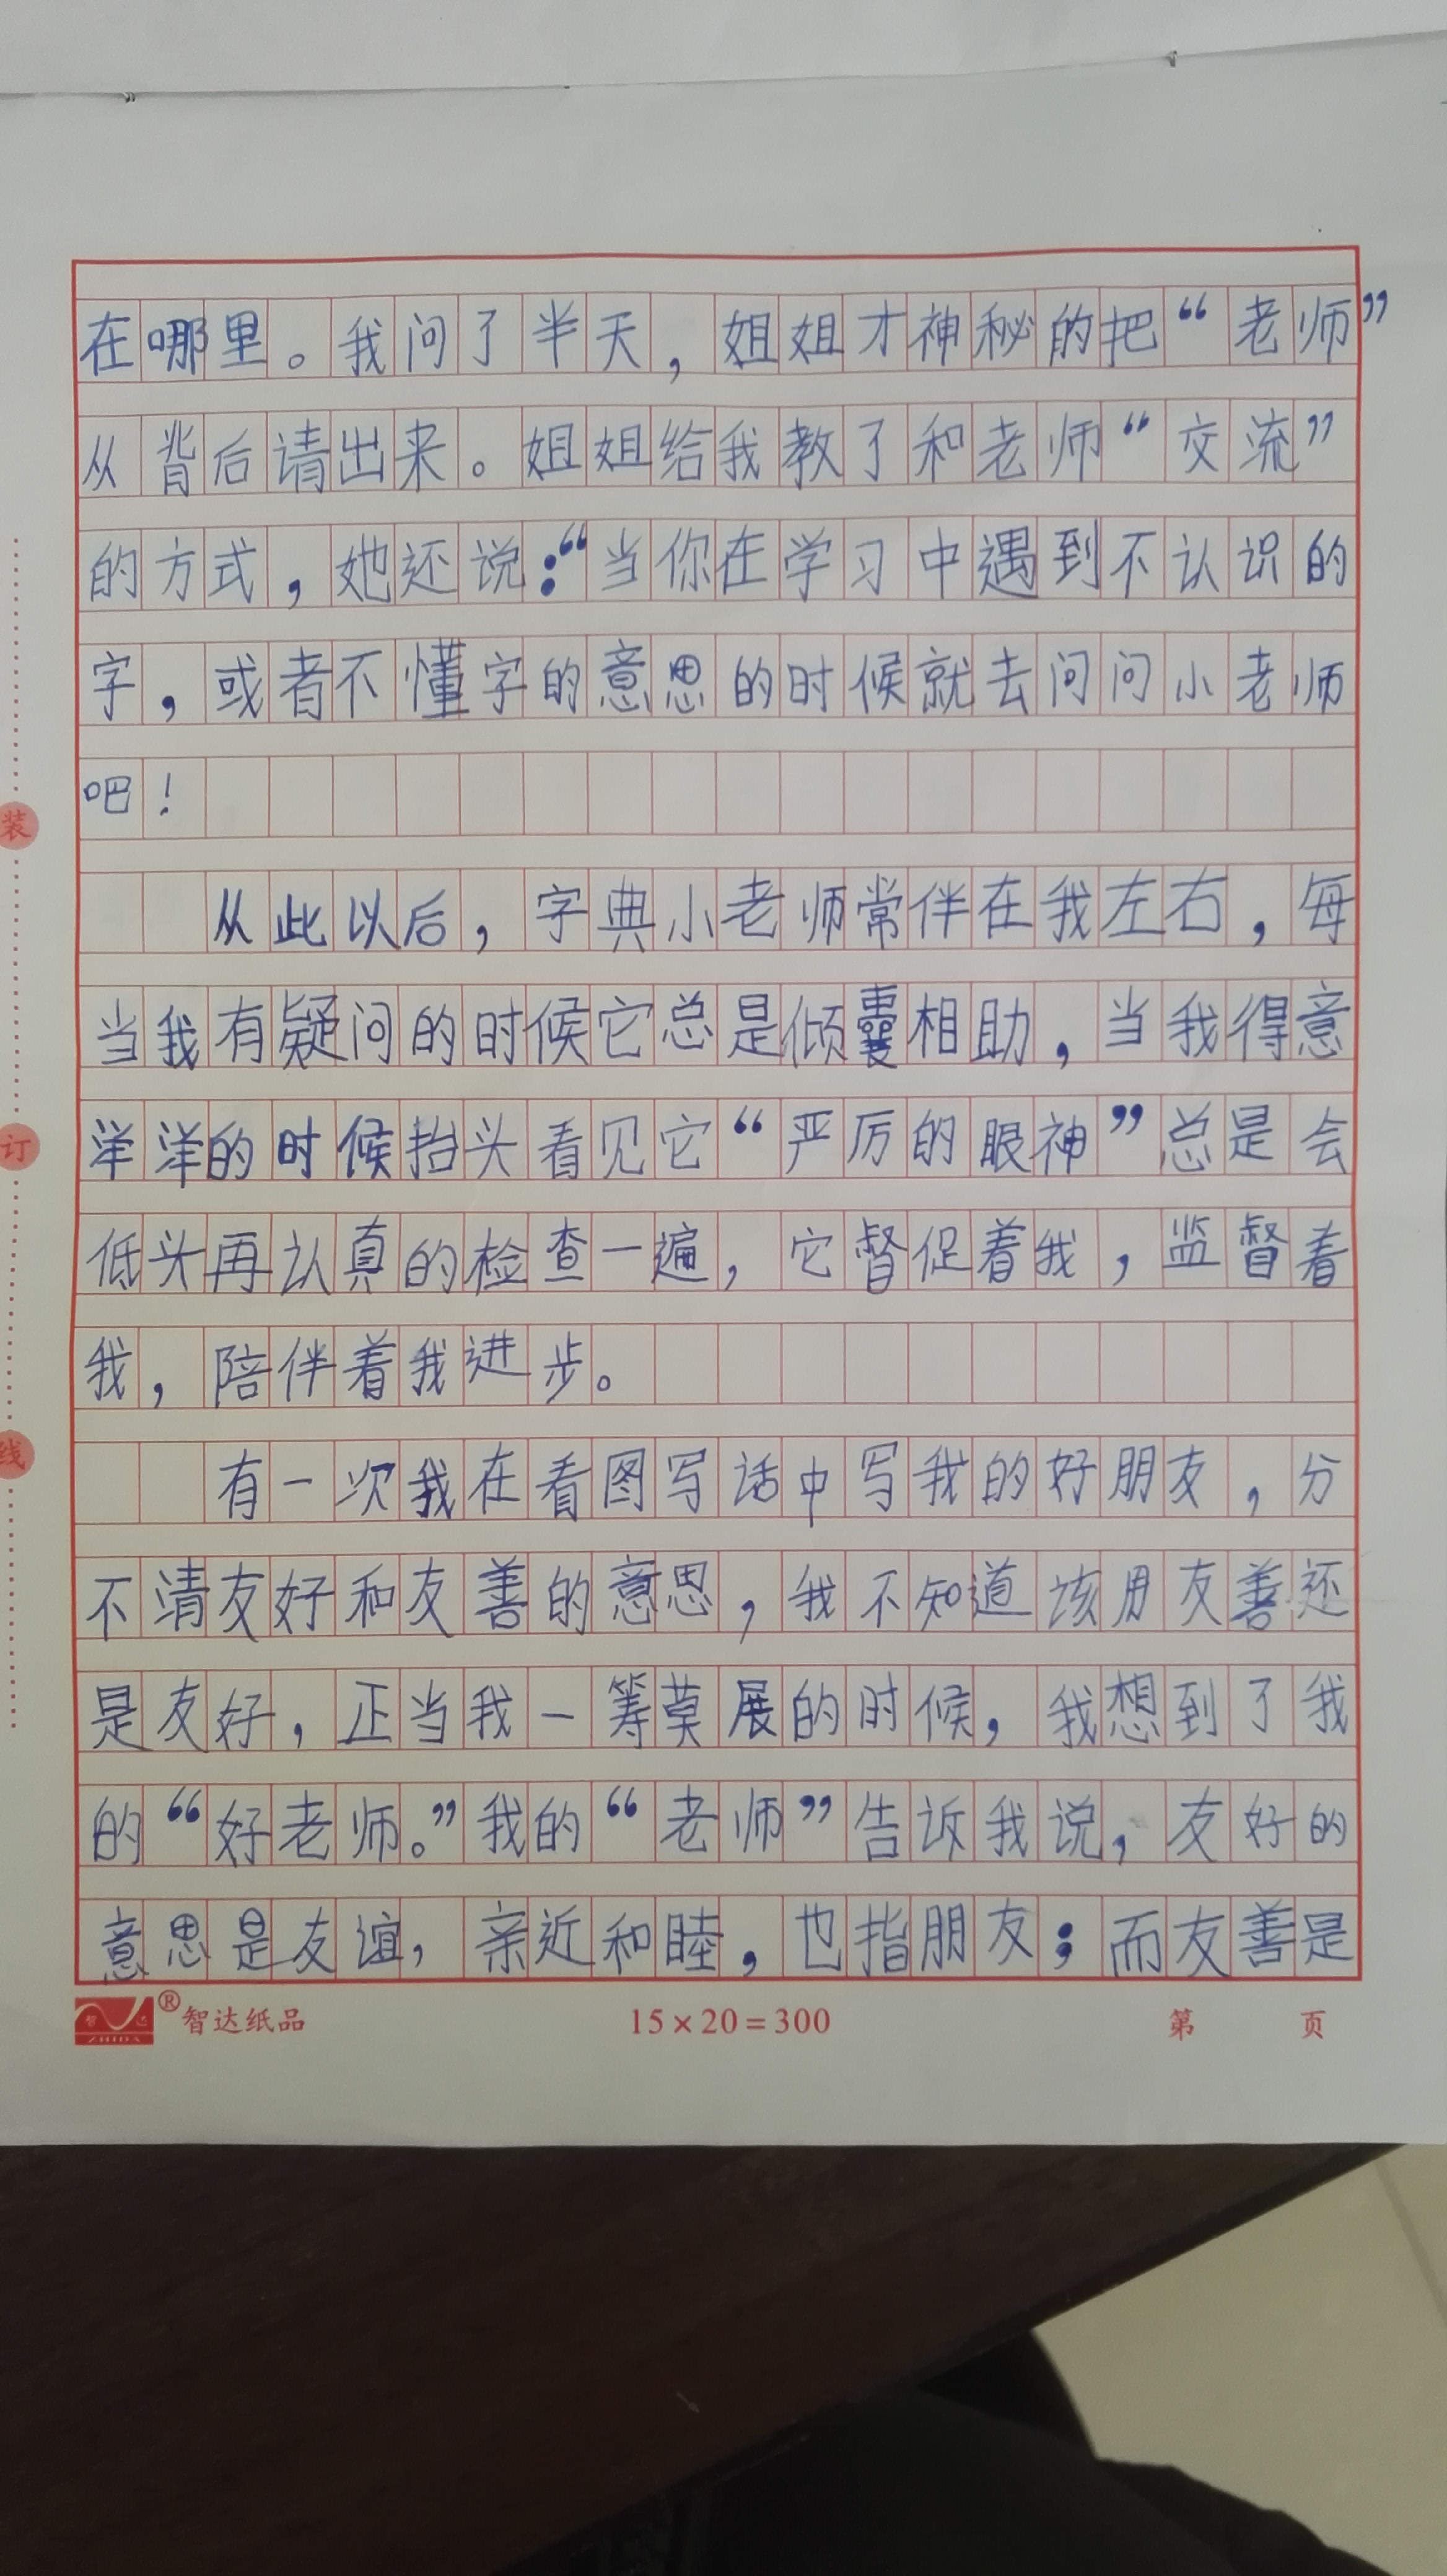 在哪里。我问了半天，姐姐才神秘的把“老师”
从背后请出来。姐姐给我教了和老师“交流”
的方式，她还说：“当你在学习中遇到不认识的
字，或者不懂字的意思的时候就去问问小老师
吧！
从此以后，字典小老师常伴在我左右，每
当我有疑问的时候它总是倾囊相助，当我得意
洋洋的时候抬头看见它“严厉的眼神”总是会
低头再认真的检查一遍，它督促着我，监督着
我，陪伴着我进步。
有一次我在看图写话中写我的好朋友，分
不清友好和友善的意思，我不知道该用友善还
是友好，正当我一筹莫展的时候，我想到了我
的“好老师。”我的“老师”告诉我说，友好的
意思是友谊，亲近和睦，也指朋友；而友善是
智达 ZHIDA ® 智达纸品 15×20=300 第 页
装
订
线